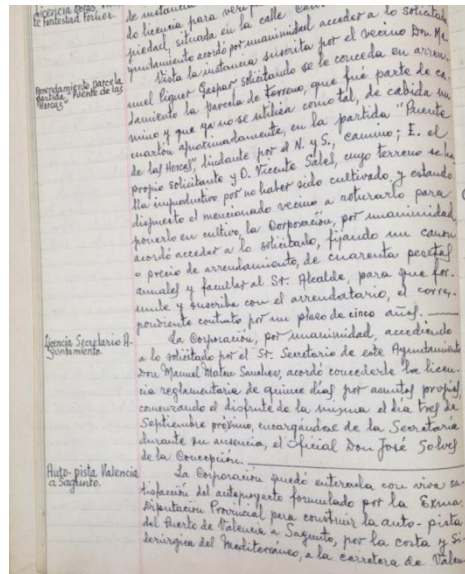 Licencia obras, Vi-
te Fontestad Forner.
de instancia
do licencia para veri
piedad, situada en la calle
yuntamiento acordó por unanimidad acceder a lo solicitado.
Arrendamiento parcela
partida "Puente de las
Horcas"
Vista la instancia suscrita por el vecino Don Ma-
nuel Piquer Gaspar solicitando se le conceda en arren-
damiento la parcela de terreno, que fué parte de ca-
mino y que ya no se utiliza como tal, de cabida un
cuartón aproximadamente, en la partida "Puente
de las Horcas", lindante por el N. y S., camino; E. el
propio solicitante y O. Vicente Sales, cuyo terreno se ha-
lla improductivo por no haber sido cultivado, y estando
dispuesto el mencionado vecino a roturarlo para
ponerlo en cultivo, la Corporación, por unanimidad
acordó acceder a lo solicitado, fijando un canon
o precio de arrendamiento, de cuarenta pesetas
anuales y facultar al Sr. Alcalde, para que for-
mule y suscriba con el arrendatario, el corres-
pondiente contrato por un plazo de cinco años.
Licencia Secretario A-
yuntamiento.
La Corporación, por unanimidad, accediendo
a lo solicitado por el Sr. Secretario de este Ayuntamiento
Don Manuel Mateu Sanchis, acordó concederle la licen-
cia reglamentaria de quince días por asuntos propios,
comenzando el disfrute de la misma el día tres de
Septiembre próximo, encargándose de la Secretaría
durante su ausencia, el Oficial Don José Solves
de la Concepción.
Auto-pista Valencia
a Sagunto.
La Corporación quedó enterada con viva sa-
tisfacción del anteproyecto formulado por la Exma.
Diputación Provincial para construir la auto-pista
del Puerto de Valencia a Sagunto, por la costa y Si-
derúrgica del Mediterráneo, a la carretera de Valen